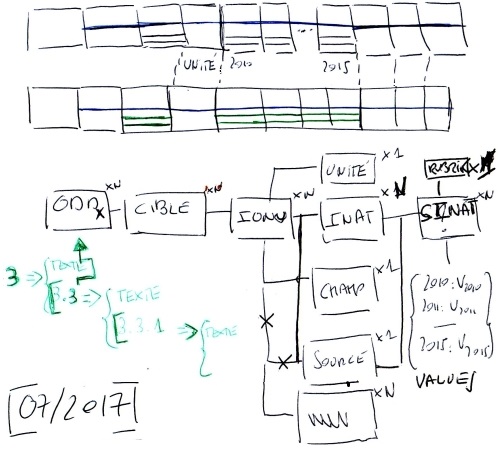 UNITÉ 2010 ... 2015
UNITÉ x1
ODD xN
CIBLE xN
xN
INAT xN
xN
CHAMP x1
SOURCE x1
xN
3 => { TEXTE
3.3 => { TEXTE
3.3.1 => { TEXTE
2010: V2010
2011: V2011
2015: V2015
VALUES
[07/2017]